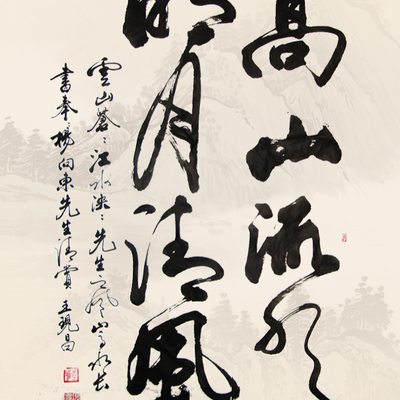 高山流水
明月清風
雲山蒼々江水泱々先生之風山高水長
書奉楊向東先生清賞 王現昌